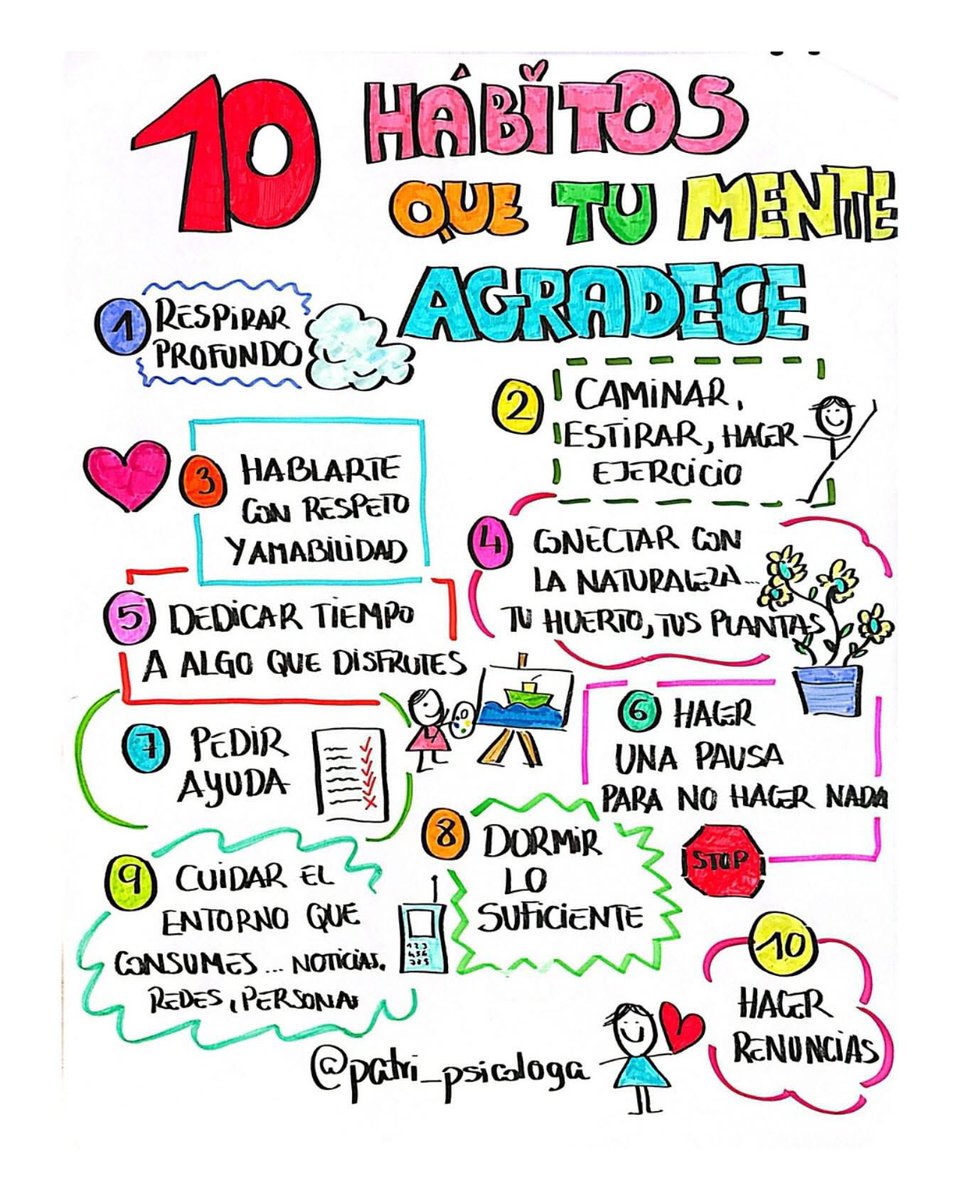 10 HÁBITOS
QUE TU MENTE
AGRADECE
1 RESPIRAR
PROFUNDO
2 CAMINAR,
ESTIRAR, HACER
EJERCICIO
3 HABLARTE
CON RESPETO
Y AMABILIDAD
4 CONECTAR CON
LA NATURALEZA...
TU HUERTO, TUS PLANTAS
5 DEDICAR TIEMPO
A ALGO QUE DISFRUTES
6 HACER
UNA PAUSA
PARA NO HACER NADA
STOP
7 PEDIR
AYUDA
8 DORMIR
LO
SUFICIENTE
9 CUIDAR EL
ENTORNO QUE
CONSUMES... NOTICIAS,
REDES, PERSONAS
10
HACER
RENUNCIAS
@patri_psicologa